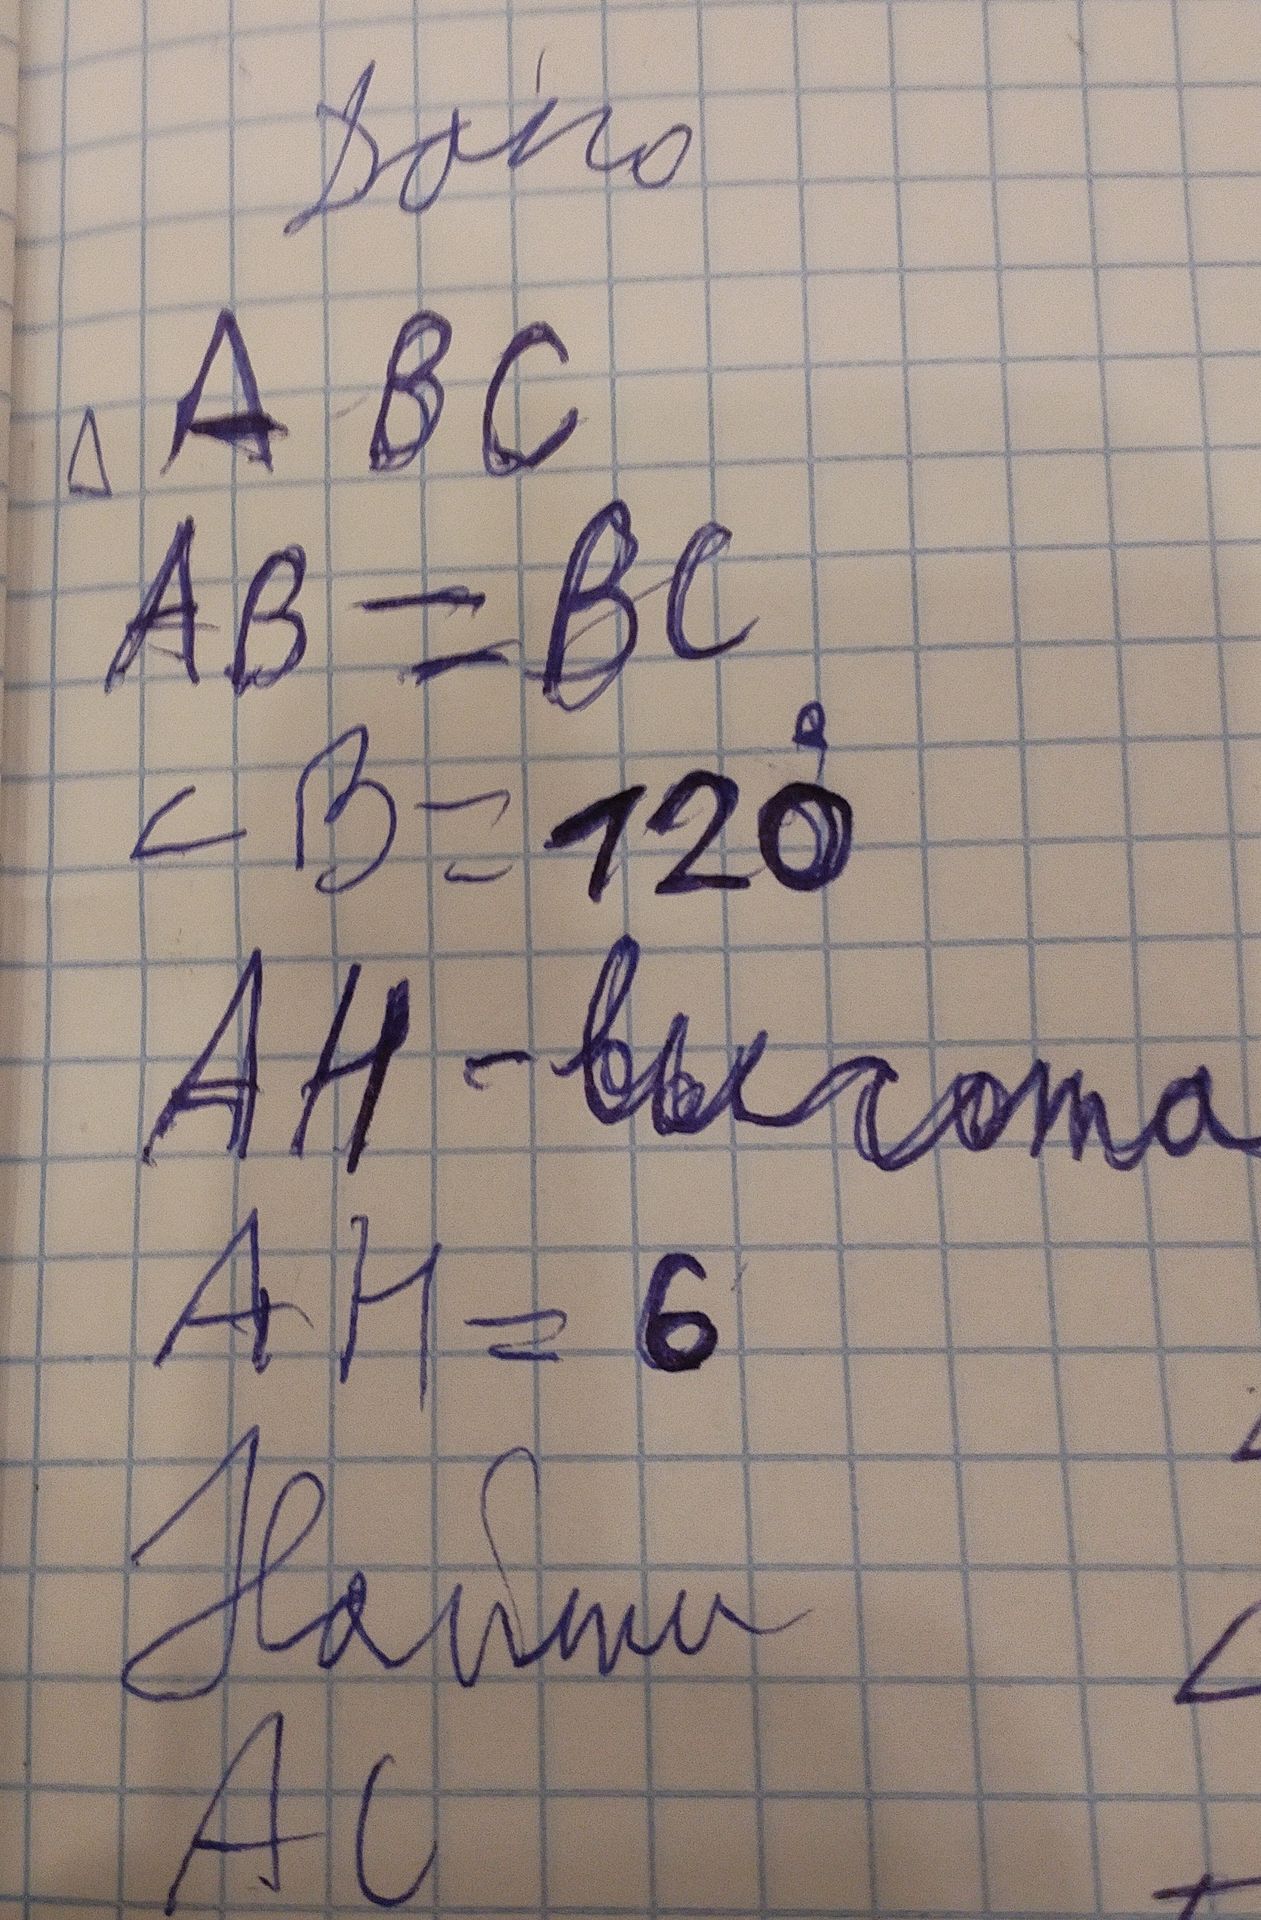 Дано
△ABC
AB = BC
<B = 120°
AH - высота
AH = 6
Найти
AC